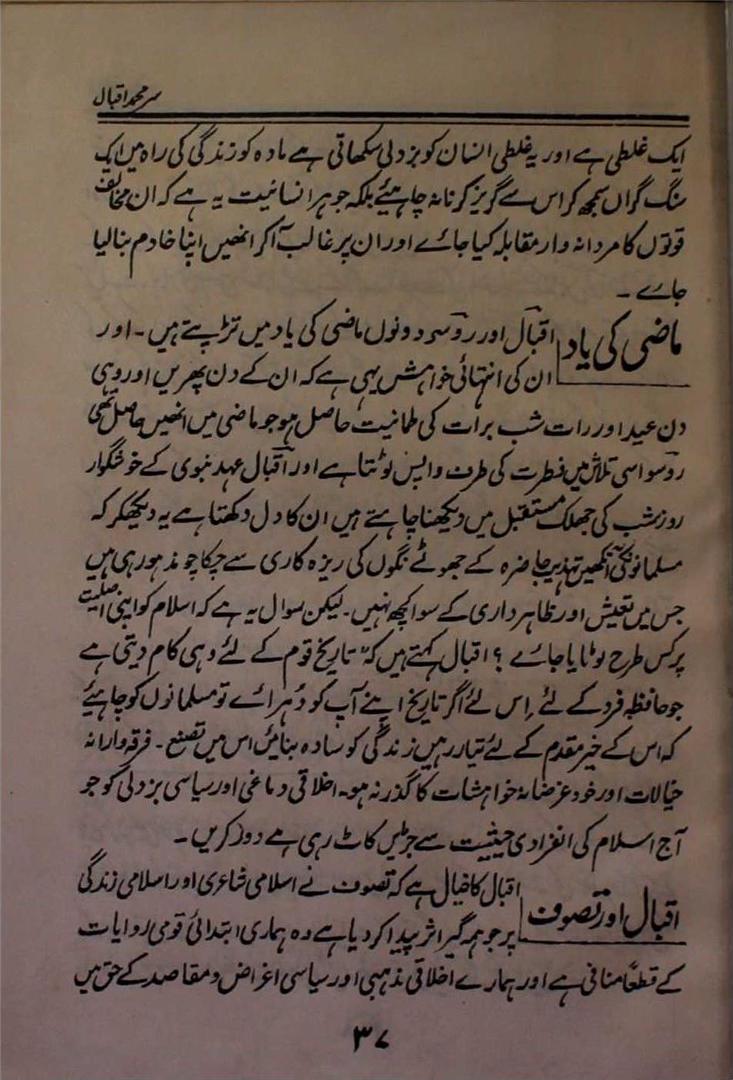 سر محمد اقبال
ایک غلطی ہے اور یہ غلطی انسان کو بزدلی سکھاتی ہے مادہ کو زندگی کی راہ میں ایک
سنگ گراں سمجھ کر اس سے گریز کرنا نہ چاہیئے بلکہ جوہر انسانیت یہ ہے کہ ان مخالف
قوتوں کا مردانہ وار مقابلہ کیا جائے اور ان پر غالب آ کر انھیں اپنا خادم بنا لیا
جائے ۔
ماضی کی یاد
اقبال اور روسو دونوں ماضی کی یاد میں تڑپتے ہیں ۔ اور
ان کی انتہائی خواہش یہی ہے کہ ان کے دن پھریں اور وہی
دن عید اور رات شب برات کی طمانیت حاصل ہو جو ماضی میں انھیں حاصل تھی
روسو اسی تلاش میں فطرت کی طرف واپس لوٹتا ہے اور اقبال عہد نبوی کے خوشگوار
روز شب کی جھلک مستقبل میں دیکھنا چاہتے ہیں ان کا دل دکھتا ہے یہ دیکھکر کہ
مسلمانونکی آنکھیں تہذیب حاضرہ کے جھوٹے نگوں کی ریزہ کاری سے چکا چوند ہو رہی ہیں
جس میں تعیش اور ظاہر داری کے سوا کچھ نہیں ۔ لیکن سوال یہ ہے کہ اسلام کو اپنی اصلیت
پر کس طرح لوٹایا جائے ؟ اقبال کہتے ہیں کہ "تاریخ قوم کے لئے وہی کام دیتی ہے
جو حافظہ فرد کے لئے اس لئے اگر تاریخ اپنے آپ کو دُہرائے تو مسلمانوں کو چاہیئے
کہ اس کے خیر مقدم کے لئے تیار رہیں زندگی کو سادہ بنائیں اس میں تصنع ۔ فرقہ وارانہ
خیالات اور خود غرضانہ خواہشات کا گذر نہ ہو ۔ اخلاقی دماغی اور سیاسی بزدلی کو جو
آج اسلام کی انفرادی حیثیت سے جڑیں کاٹ رہی ہے دور کریں ۔
اقبال اور تصوف
اقبال کا خیال ہے کہ تصوف نے اسلامی شاعری اور اسلامی زندگی
پر جو ہمہ گیر اثر پیدا کر دیا ہے وہ ہماری ابتدائی قومی روایات
کے قطعاً منافی ہے اور ہمارے اخلاقی مذہبی اور سیاسی اغراض و مقاصد کے حق میں
۳۷